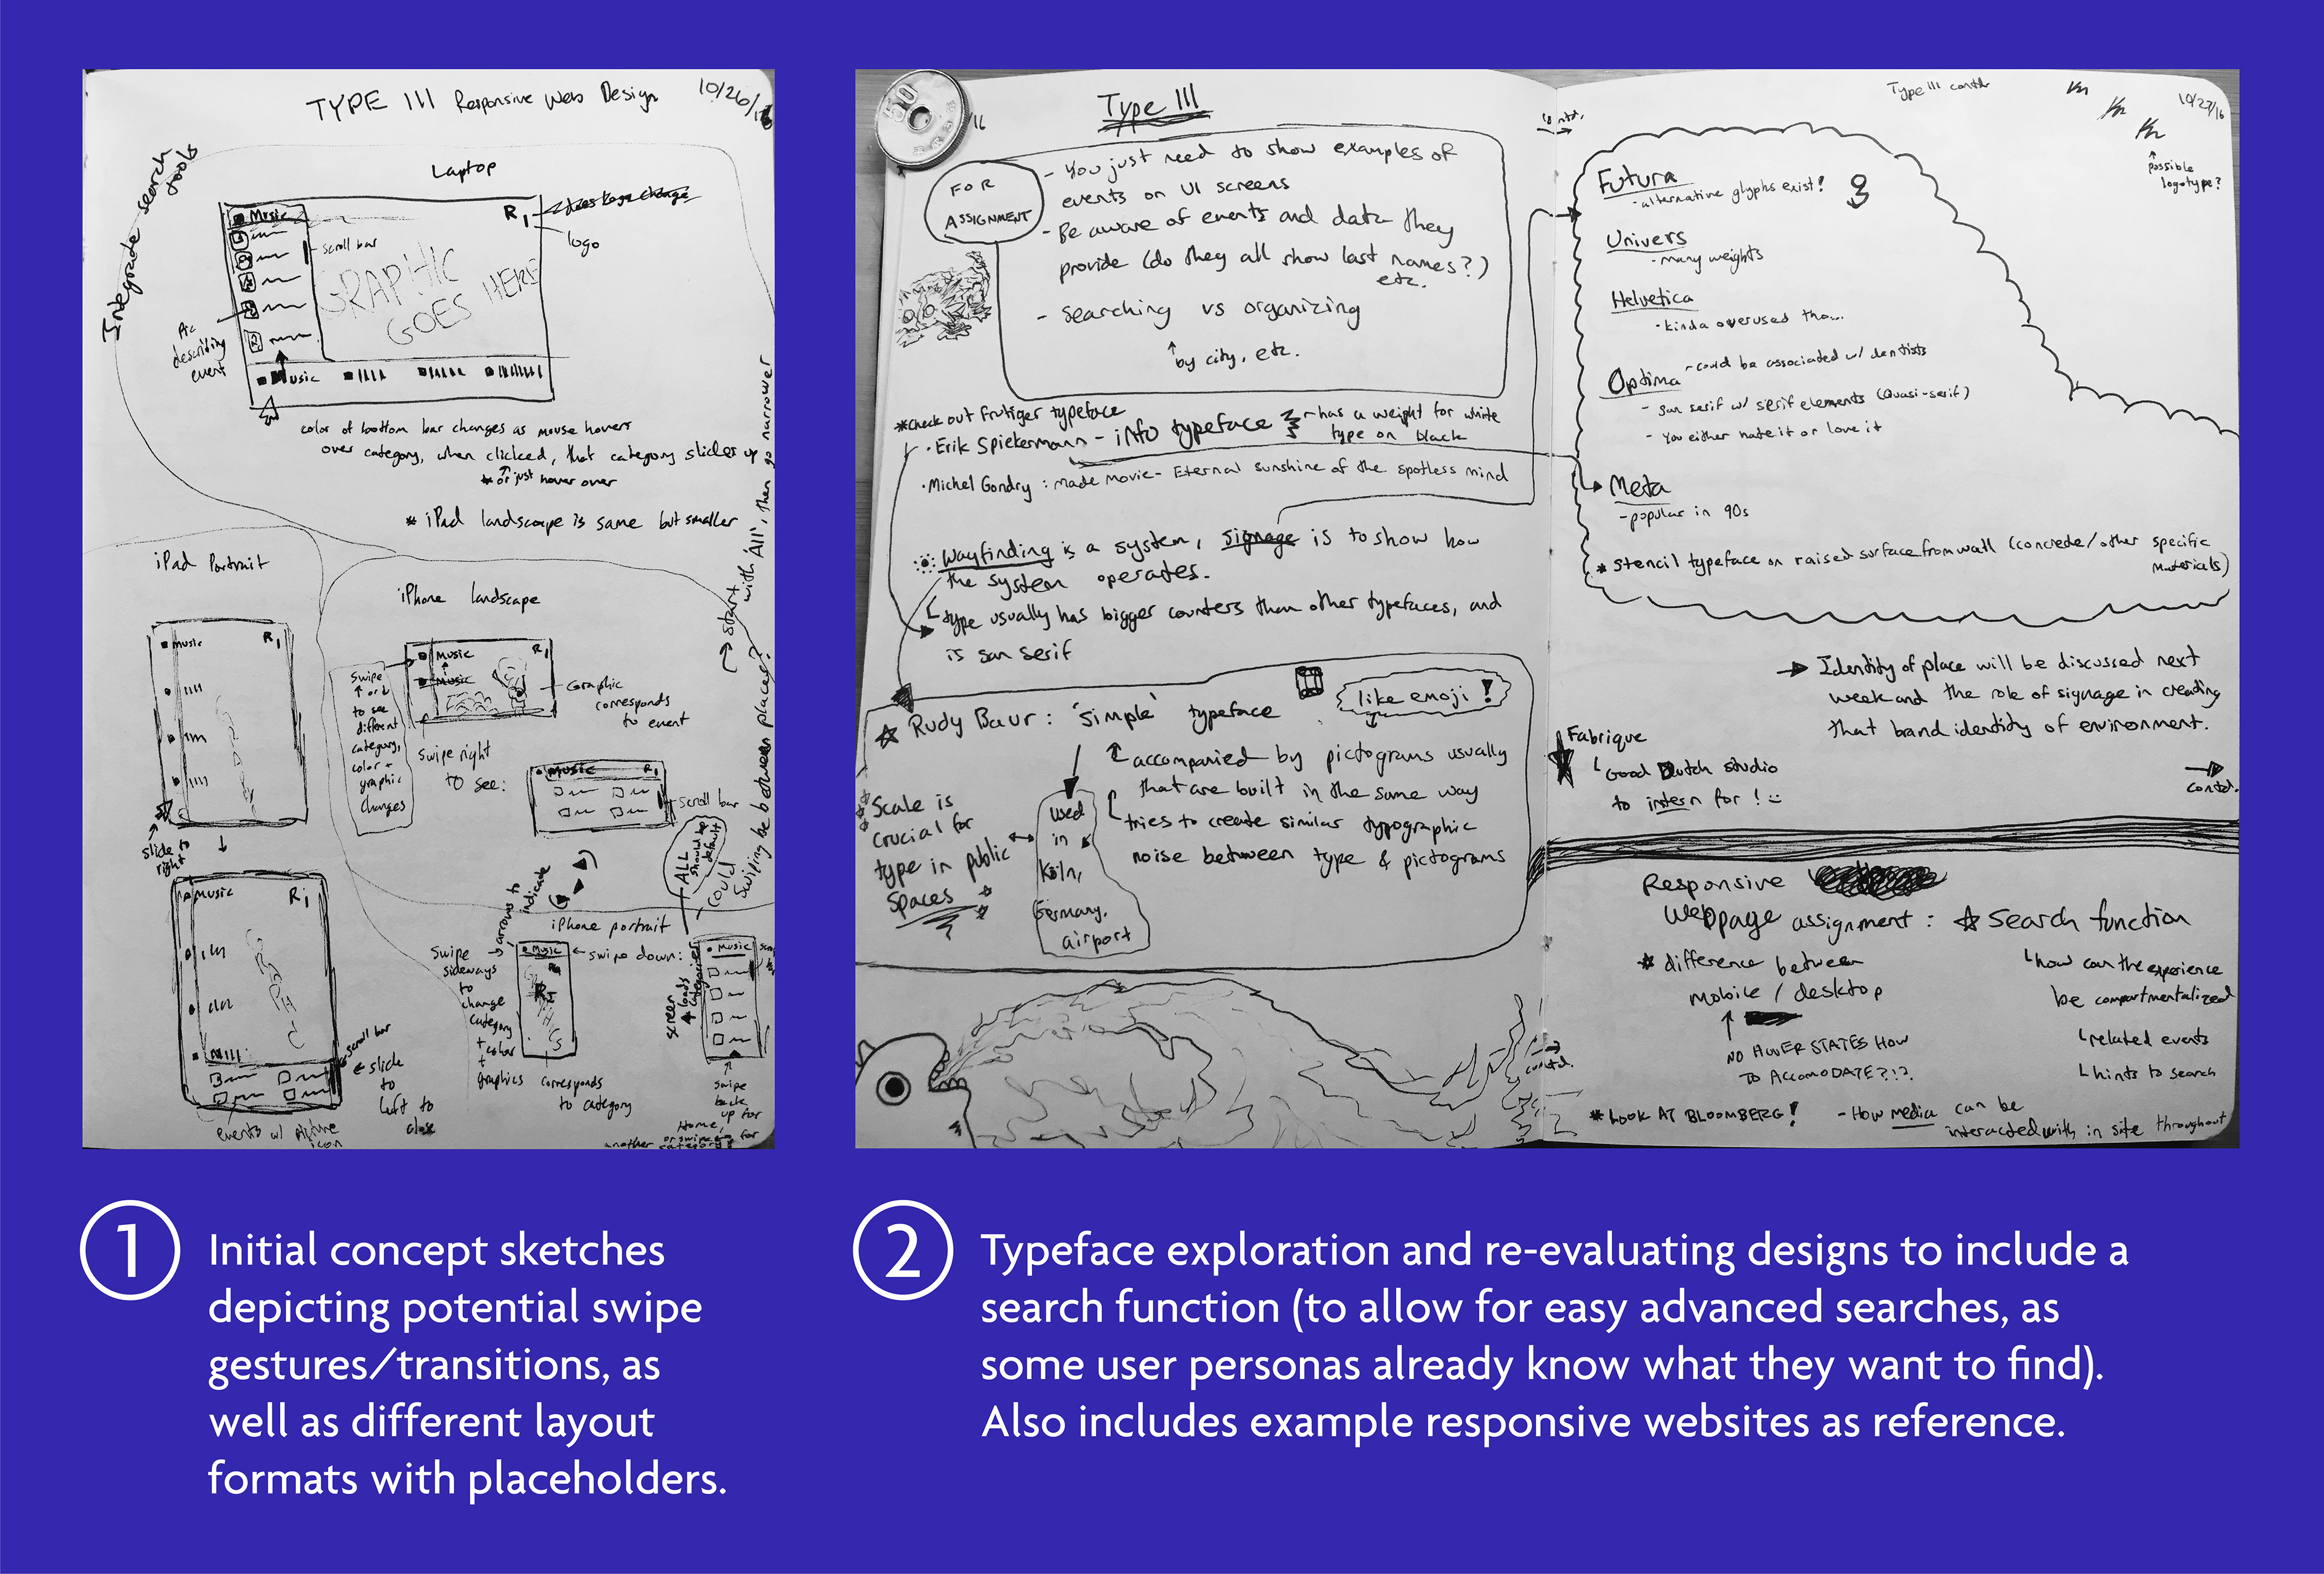 TYPE III Responsive Web Design
10/26/16
Integrate search
tools
Laptop
Music
R1
logo
scroll bar
GRAPHIC
GOES HERE
Pic
describing
event
Music
color of bottom bar changes as mouse hovers
over category, when clicked, that category slides up
* or just hover over
* iPad landscape is same but smaller
start with 'All', then go narrower
iPad Portrait
music
R1
slide to
right
music
R1
scroll bar
slide
to
left to
close
events w/ picture
icon
iPhone landscape
Music
R1
Music
Swipe
↑ or ↓
to see
different
category,
color +
graphic
changes
Graphic
corresponds
to event
Swipe right
to see:
Music
R1
scroll bar
ALL
should be
default
could
swiping be between places?
arrows to
indicate
iPhone portrait
Swipe
sideways
to
change
category
+ color
+
graphics
Music
corresponds
to category
swipe down:
Music
screen
loads
categories
swipe
back
up for
Home,
or swipe for
another category
Type III
16
FOR
ASSIGNMENT
- You just need to show examples of
events on UI screens
- Be aware of events and data they
provide (do they all show last names?)
etc.
- Searching vs organizing
↑ by city, etc.
*Check out frutiger typeface
· Erik Spiekermann - info typeface
has a weight for white
type on black
· Michel Gondry : made movie - Eternal sunshine of the spotless mind
Wayfinding is a system, signage is to show how
the system operates.
type usually has bigger counters than other typefaces, and
is san serif
Rudy Baur : 'simple' typeface
like emoji!
accompanied by pictograms usually
that are built in the same way
tries to create similar typographic
noise between type & pictograms
Scale is
crucial for
type in public
spaces
used
in
Köln,
Germany,
airport
contd.
Type III contd.
10/27/16
possible
logotype?
Futura
- alternative glyphs exist!
Univers
- many weights
Helvetica
· kinda overused tho...
Optima
- could be associated w/ dentists
- san serif w/ serif elements (Quasi-serif)
- You either hate it or love it
Meta
- popular in 90s
* stencil typeface on raised surface from wall (concrete/other specific
materials)
→ Identity of place will be discussed next
week and the role of signage in creating
that brand identity of environment.
Fabrique
Good Dutch studio
to intern for! :)
contd.
Responsive
Webpage assignment : ☆ Search function
* difference between
mobile / desktop
NO HOVER STATES HOW
TO ACCOMODATE?!?
how can the experience
be compartmentalized
related events
hints to search
* LOOK AT BLOOMBERG!
- How media can be
interacted with in site throughout
contd.
1
Initial concept sketches
depicting potential swipe
gestures/transitions, as
well as different layout
formats with placeholders.
2
Typeface exploration and re-evaluating designs to include a
search function (to allow for easy advanced searches, as
some user personas already know what they want to find).
Also includes example responsive websites as reference.